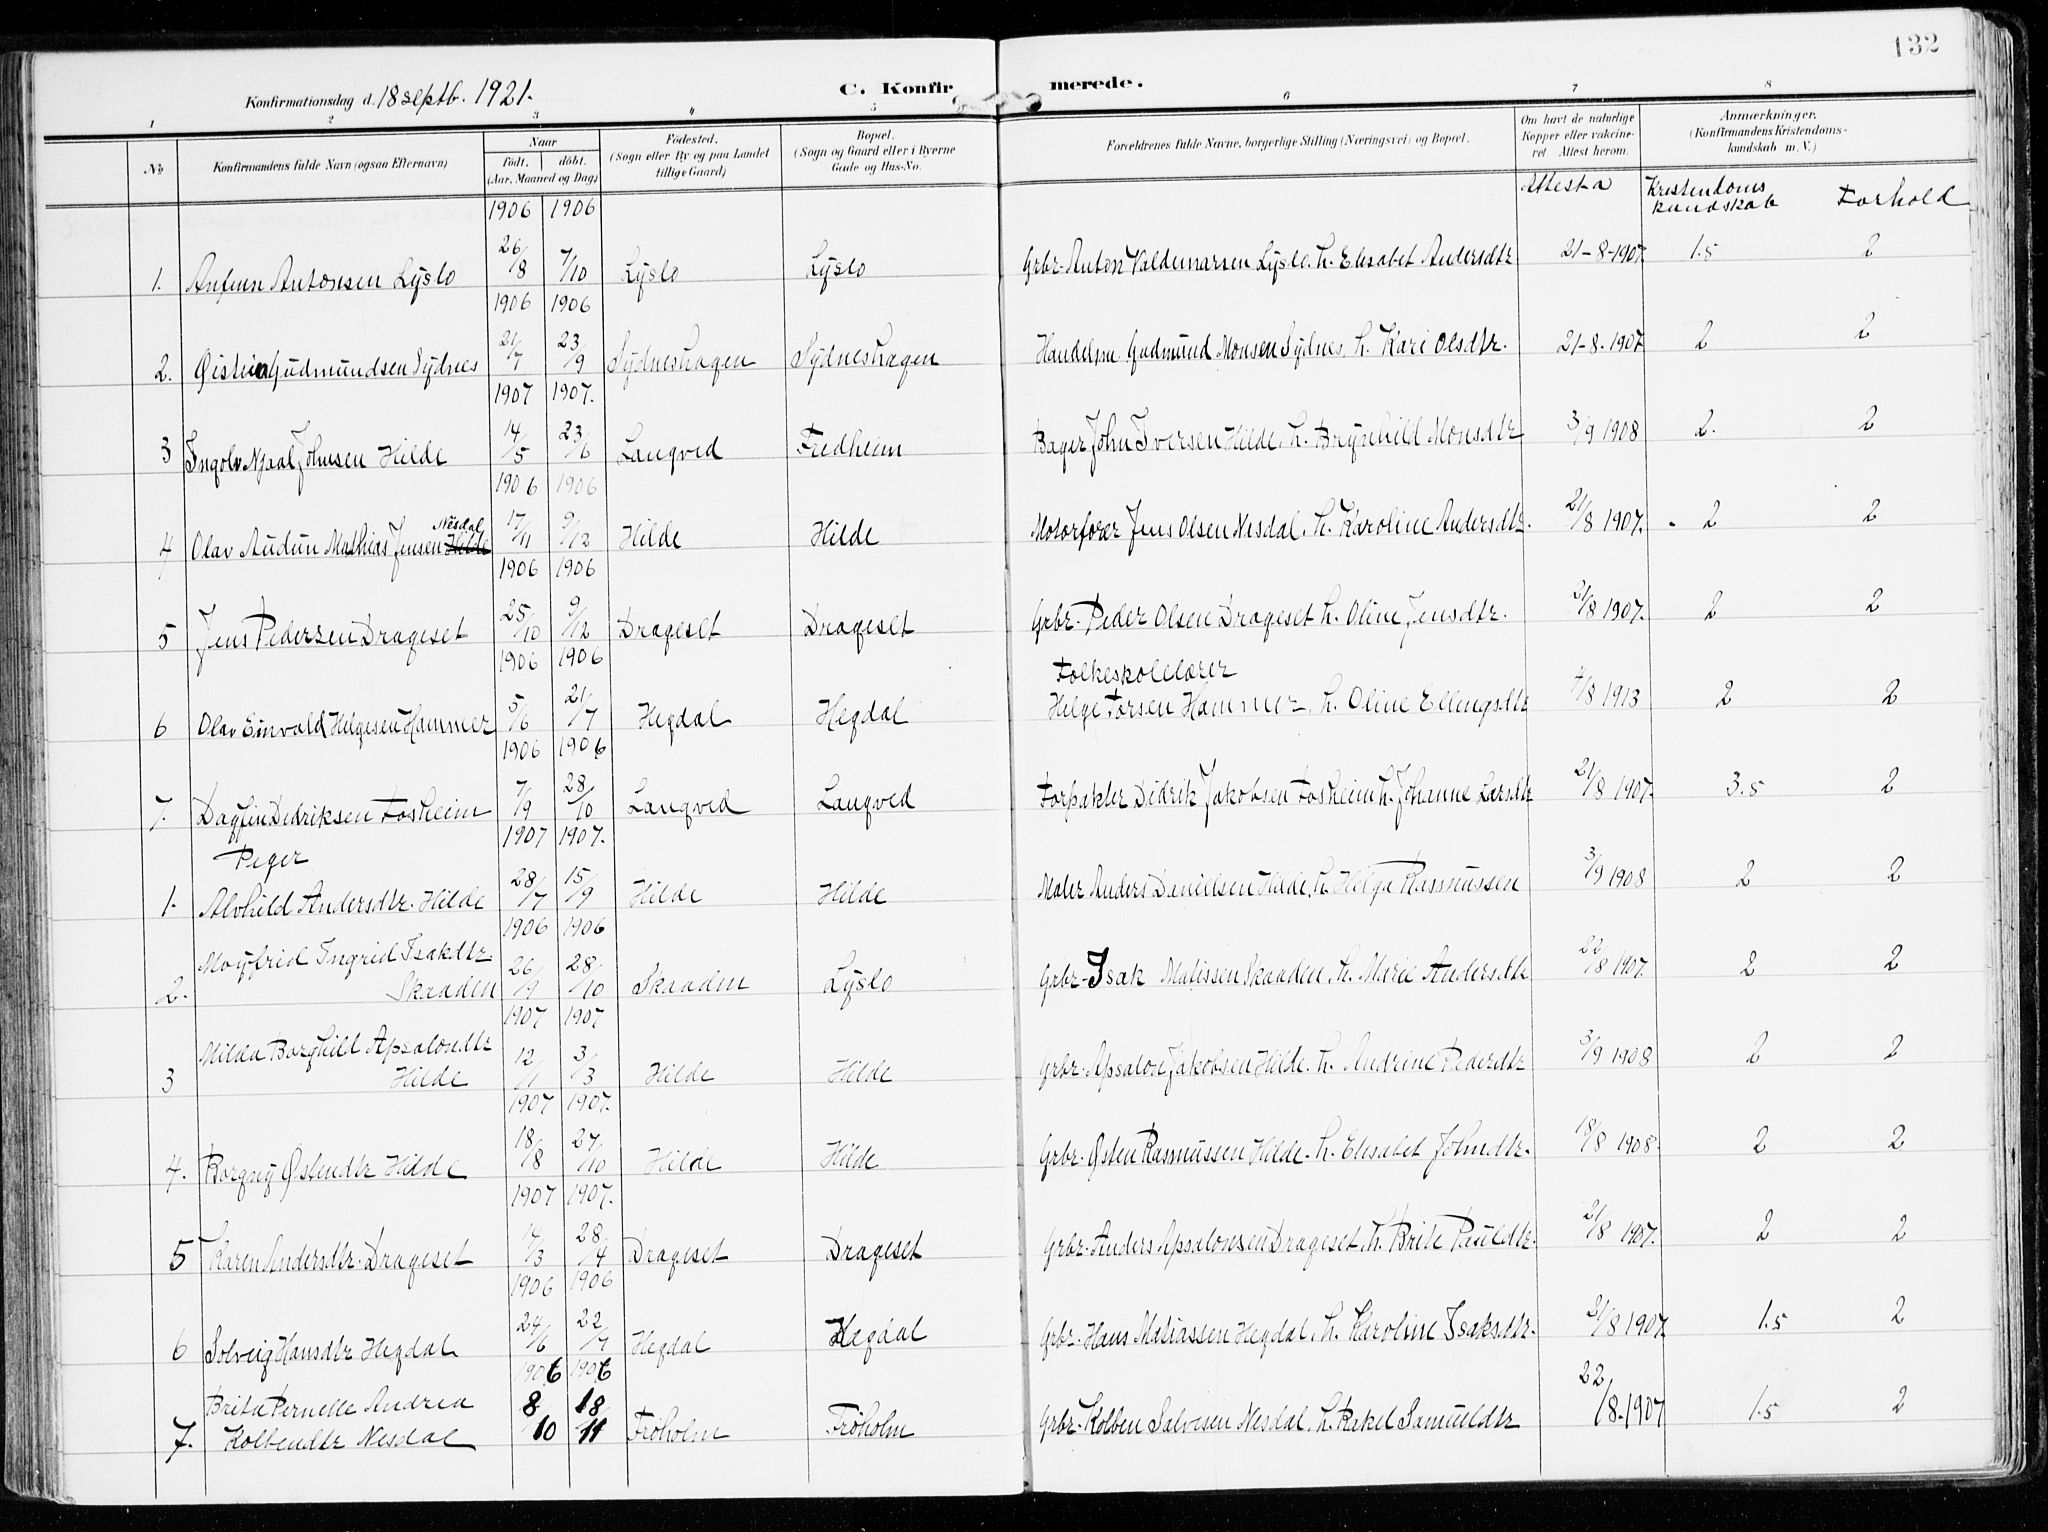 132
Konfirmationsdag d. 18 septb. 1921.
C. Konfirmerede.
1 2 3 4 5 6 7 8
No
Konfirmandens fulde Navn (ogsaa Efternavn)
Naar
født. døbt.
(Aar, Maaned og Dag)
Fødested.
(Sogn eller By og paa Landet
tillige Gaard)
Bopæl.
(Sogn og Gaard eller i Byerne
Gade og Hus-No.
Forældrenes fulde Navne, borgerlige Stilling (Næringsvei) og Bopæl.
Om havt de naturlige
Kopper eller vakcine-
ret Attest herom.
Anmærkninger.
(Konfirmandens Kristendoms-
kundskab m. V.)
Attest a Kristendoms kundskab Forhold
1906 1906
1. Anfinn Antonsen Lyslo 26/8 7/10 Lyslo Lyslo Grbr. Anton Valdemarsen Lyslo. h. Elisabet Andersdtr 21-8-1907. 1.5 2
1906 1906
2. Øistein Gudmundsen Sydnes 21/7 23/9 Sydneshagen Sydneshagen Handelsm. Gudmund Monsen Sydnes, h. Kari Olsdtr. 21-8-1907 2 2
1907 1907.
3 Ingolv Njaal Johnsen Hilde 14/5 23/6 Langved Fredheim Bager John Iversen Hilde, h. Brynhild Monsdtr 3/9 1908 2. 2
1906 1906
4 Olav Audun Mathias Jensen Hilde Nesdal 17/11 9/12 Hilde Hilde Motorfører Jens Olsen Nesdal, h. Karoline Andersdtr. 21/8 1907. 2 2
1906 1906
5 Jens Pedersen Drageset 25/10 9/12 Drageset Drageset Grbr. Peder Olsen Drageset h. Oline Jensdtr. 21/8 1907. 2 2
1906 1906
Folkeskolelærer
6 Olav Einvald Helgesen Hammer 5/6 21/7 Hegdal Hegdal Helge Torsen Hammer, h. Oline Ellingsdtr 4/8 1913 2 2
1906 1906
7. Dagfin Didriksen Fosheim 7/9 28/10 Langved Langved Forpakter Didrik Jakobsen Fosheim h. Johanne Larsdtr 21/8 1907. 3.5 2
1907 1907.
Piger
1. Alvhild Andersdtr. Hilde 28/7 15/9 Hilde Hilde Maler Anders Danielsen Hilde, h. Helga Rasmussen 3/9 1908 2 2
1906 1906
2. Moyfrid Ingrid Isakdtr Skaaden 26/9 28/10 Skaaden Lyslo Grbr. Isak Matissen Skaaden, h. Marie Andersdtr 22/8 1907. 2 2
1907 1907
3 Milda Borghild Apsalondtr Hilde 12/1 3/3 Hilde Hilde Grbr. Apsalon Jakobsen Hilde. h. Andrine Pederdtr 3/9 1908 2 2
1907 1907.
4. Borgny Østendtr Hilde 18/8 27/10 Hilde Hilde Grbr. Østen Rasmussen Hilde. h. Elisabet Johndtr. 18/8 1908. 2 2
1907 1907.
5 Karen Andersdtr. Drageset 14/3 28/4 Drageset Drageset Grbr. Anders Apsalonsen Drageset, h. Brite Pauldtr. 21/8 1907. 2 2
1906 1906
6 Solveig Hansdtr Hegdal 24/6 22/7 Hegdal Hegdal Grbr. Hans Matiassen Hegdal, h. Karoline Isaksdtr. 21/8 1907. 1.5 2
1906 1906
7. Brita Pernelle Andrea Kolbendtr Nesdal 8/10 18/11 Frøholm Frøholm Grbr. Kolben Salvesen Nesdal, h. Rakel Samueldtr 22/8-1907 1.5 2